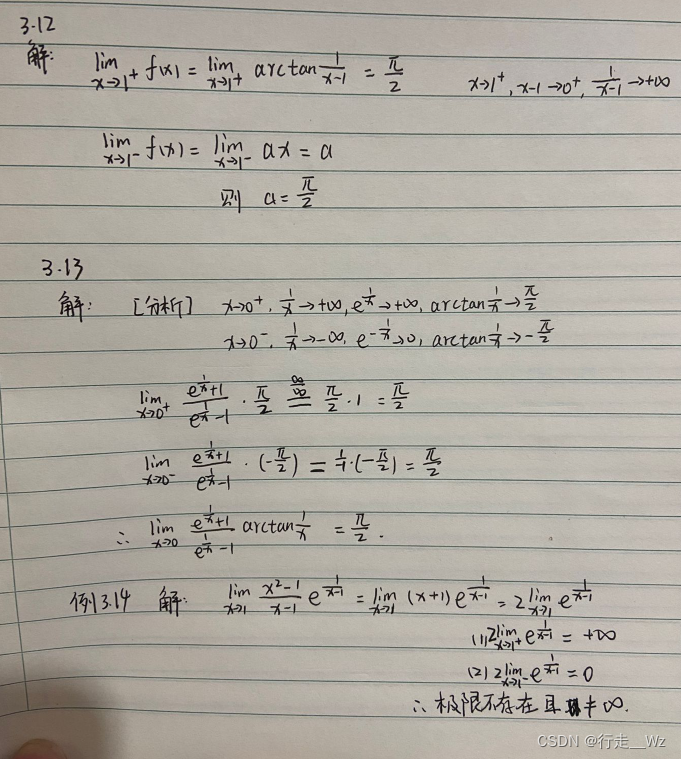 3.12
解: lim x→1⁺ f(x) = lim x→1⁺ arctan 1/(x-1) = π/2    x→1⁺, x-1→0⁺, 1/(x-1)→+∞
lim x→1⁻ f(x) = lim x→1⁻ ax = a
则 a = π/2
3.13
解: [分析] x→0⁺, 1/x→+∞, e^(1/x)→+∞, arctan 1/x→π/2
x→0⁻, 1/x→-∞, e^(-1/x)→0, arctan 1/x→-π/2
lim x→0⁺ (e^(1/x)+1)/(e^(1/x)-1) · π/2 =(∞/∞)= π/2 · 1 = π/2
lim x→0⁻ (e^(1/x)+1)/(e^(1/x)-1) · (-π/2) = 1/-1 · (-π/2) = π/2
∴ lim x→0 (e^(1/x)+1)/(e^(1/x)-1) arctan 1/x = π/2.
例3.14 解: lim x→1 (x²-1)/(x-1) e^(1/(x-1)) = lim x→1 (x+1) e^(1/(x-1)) = 2 lim x→1 e^(1/(x-1))
(1) 2 lim x→1⁺ e^(1/(x-1)) = +∞
(2) 2 lim x→1⁻ e^(1/(x-1)) = 0
∴ 极限不存在且 ≠ ∞.
CSDN @行走__Wz